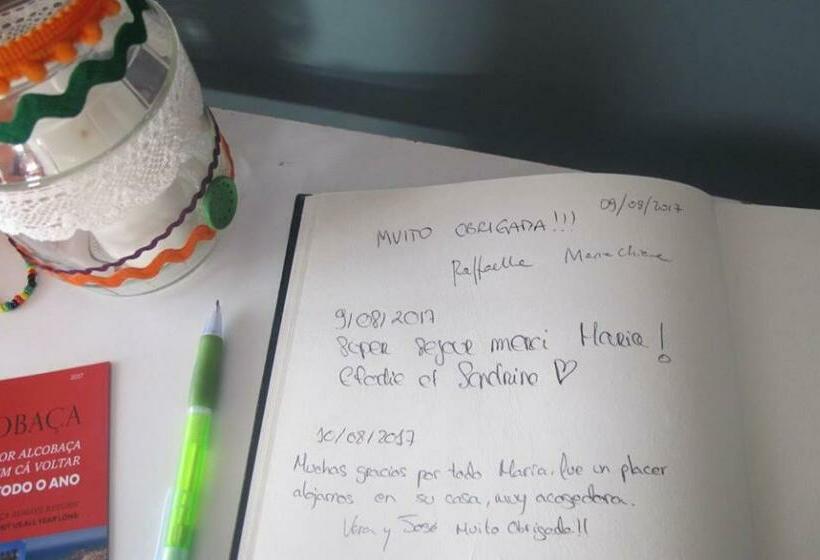 09/08/2017
MUITO OBRIGADA!!!
Raffaella Maria Chiara
9/08/2017
Super sejour merci Maria!
et Sandrine ♡
10/08/2017
Muchas gracias por todo María, fue un placer
alojarnos en su casa, muy acogedora.
Vera y José Muito Obrigado!!
2017
OBAÇA
OR ALCOBAÇA
M CÁ VOLTAR
TODO O ANO
ÇA ALWAYS RETURN
SIT US ALL YEAR LONG